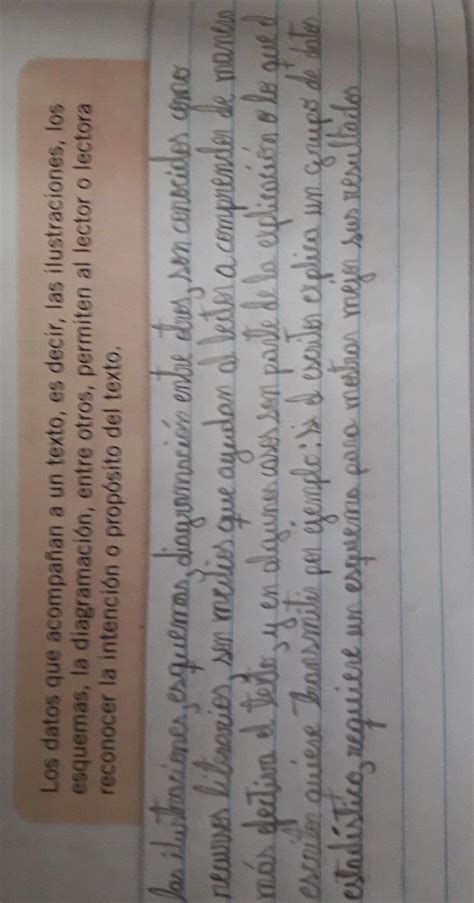 Los datos que acompañan a un texto, es decir, las ilustraciones, los
esquemas, la diagramación, entre otros, permiten al lector o lectora
reconocer la intención o propósito del texto.
las ilustraciones, esquemas, diagramación entre otros, son conocidos como
recursos literarios, son medios que ayudan al lector a comprender de manera
más efectiva el texto, y en algunos casos son parte de la explicación o lo que el
escritor quiere transmitir por ejemplo; si el escritor explica un grupo de datos
estadístico, requiere un esquema para mostrar mejor sus resultados